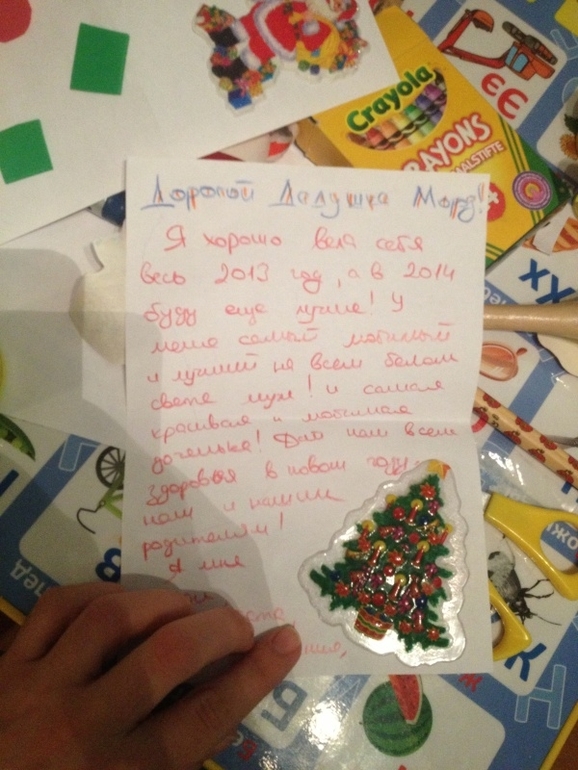 Crayola
CRAYONS
MALSTIFTE
Єє
Хх
Дорогой Дедушка Мороз!
Я хорошо вела себя
весь 2013 год, а в 2014
буду еще лучше! У
меня самый любимый
и лучший на всем белом
свете муж! и самая
красивая и любимая
доченька! Дай нам всем
здоровья в новом году,
нам и нашим
родителям!
Я мне